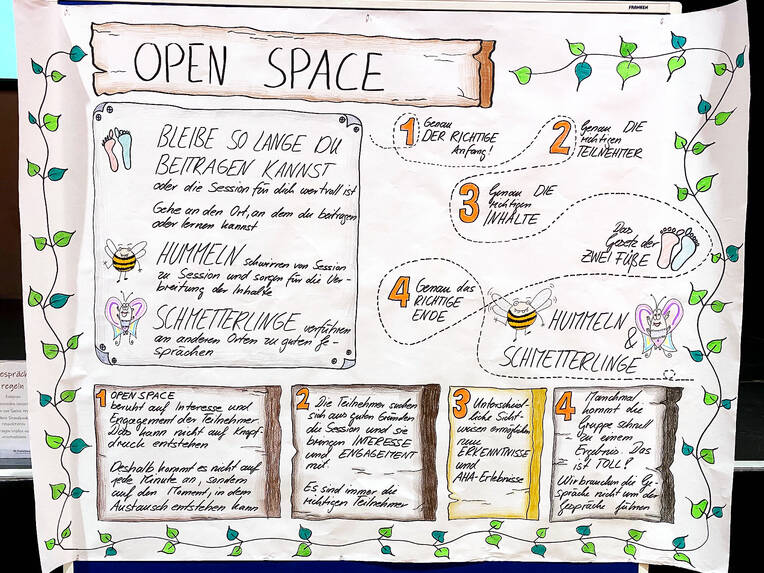 FRANKEN
OPEN SPACE
BLEIBE SO LANGE DU
BEITRAGEN KANNST
oder die Session für dich wertvoll ist
Gehe an den Ort, an dem du beitragen
oder lernen kannst
HUMMELN schwirren von Session
zu Session und sorgen für die Ver-
breitung der Inhalte
SCHMETTERLINGE verführen
an anderen Orten zu guten Ge-
sprächen
1 Genau
DER RICHTIGE
Anfang!
2 Genau DIE
richtigen
TEILNEHMER
3 Genau DIE
richtigen
INHALTE
Das
Gesetz der
ZWEI FÜßE
4 Genau das
RICHTIGE
ENDE
HUMMELN
&
SCHMETTERLINGE
1 OPEN SPACE
beruht auf Interesse und
Engagement der Teilnehmer
Das kann nicht auf Knopf-
druck entstehen
Deshalb kommt es nicht auf
jede Minute an, sondern
auf den Moment, in dem
Austausch entstehen kann
2 Die Teilnehmer suchen
sich aus guten Gründen
die Session und sie
bringen INTERESSE
und ENGAGEMENT
mit.
Es sind immer die
richtigen Teilnehmer
3 Unterschied-
liche Sicht-
weisen ermöglichen
neue
ERKENNTNISSE
und
AHA-Erlebnisse
4 Manchmal
kommt die
Gruppe schnell
zu einem
Ergebnis. Das
ist TOLL!
Wir brauchen die Ge-
spräche nicht um der
Gespräche führen
espräch
regeln